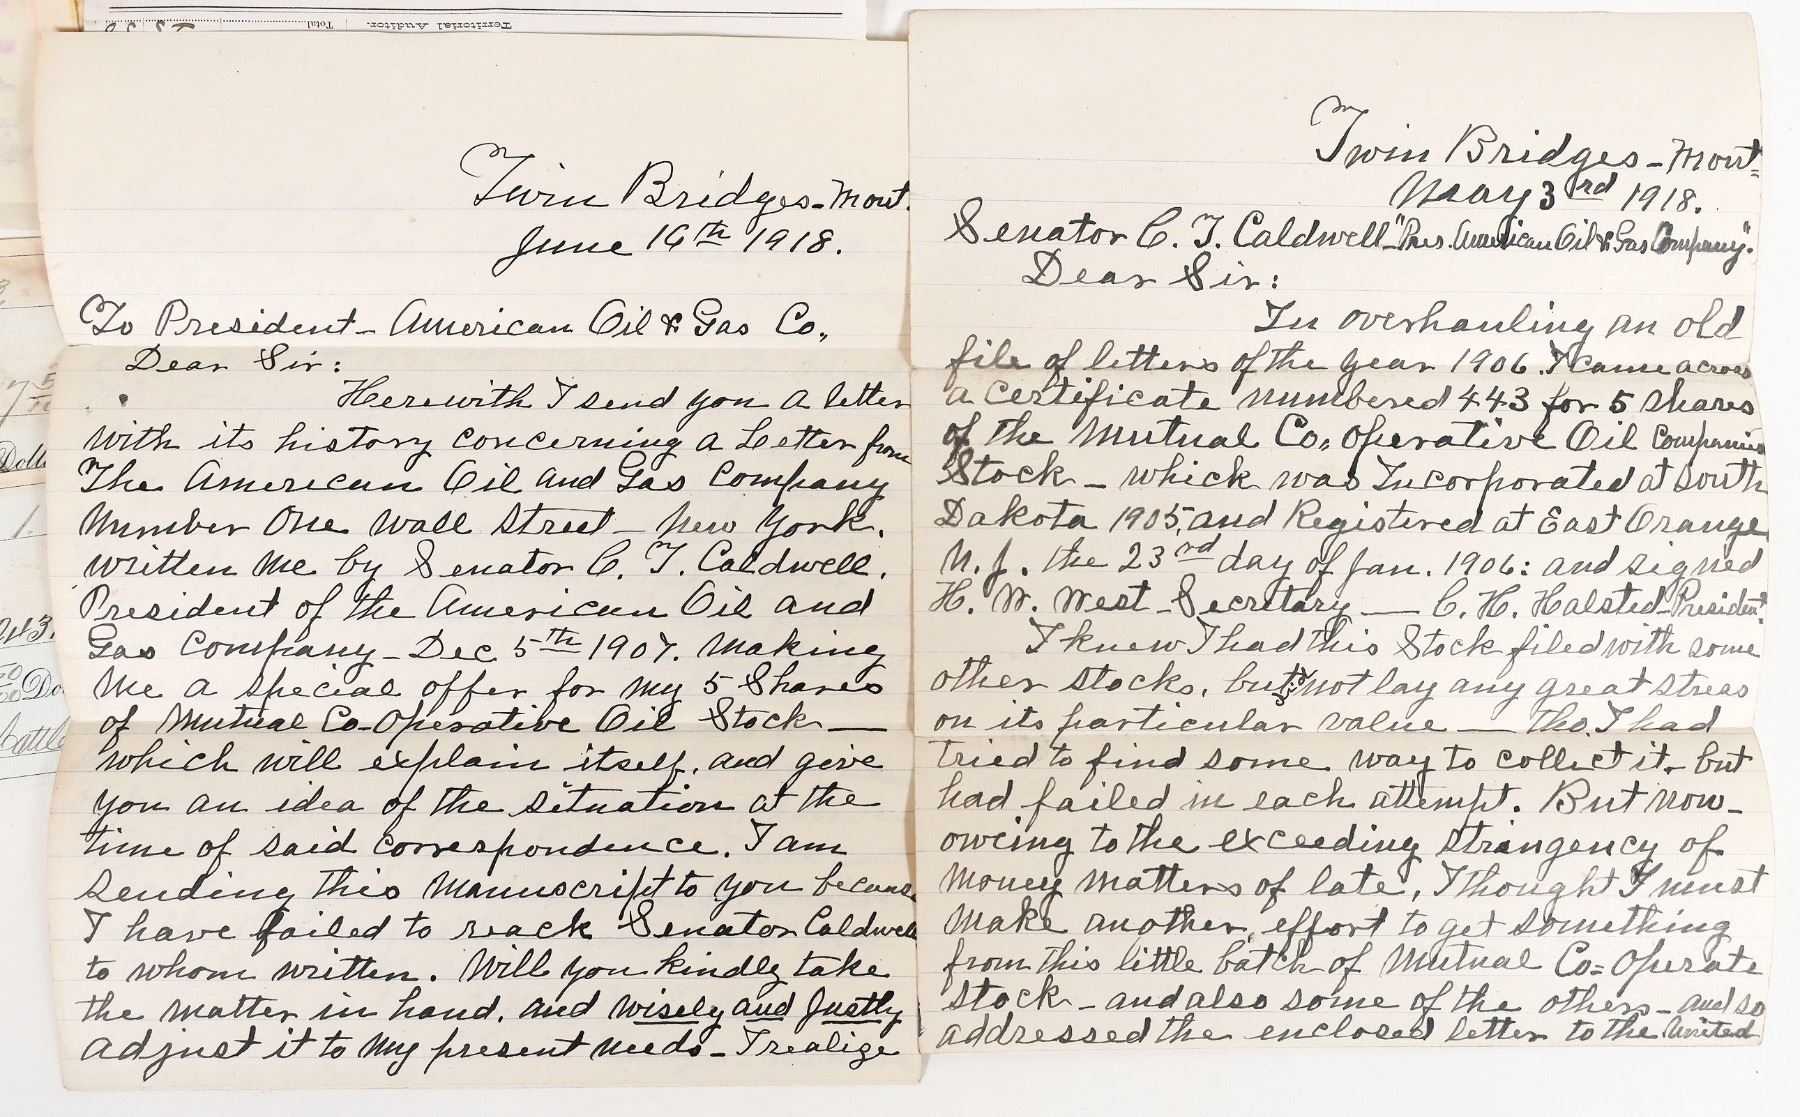 Territorial Auditor.
Total
Twin Bridges - Mont.
June 16th 1918.
To President - American Oil & Gas Co.,
Dear Sir:
Herewith I send you a letter
with its history concerning a Letter from
The American Oil and Gas Company
Number One Wall Street - New York.
written me by Senator C. T. Caldwell.
President of the American Oil and
Gas Company - Dec. 5th 1907. Making
me a special offer for my 5 Shares
of Mutual Co-Operative Oil Stock —
which will explain itself, and give
you an idea of the situation at the
time of said correspondence. I am
sending this Manuscript to you because
I have failed to reach Senator Caldwell
to whom written. Will you kindly take
the matter in hand, and wisely and Justly
adjust it to my present needs - I realize
Twin Bridges - Mont=
May 3rd 1918.
Senator C. T. Caldwell "Pres. American Oil & Gas Company".
Dear Sir:
In overhauling an old
file of letters of the year 1906. I came across
a certificate numbered 443 for 5 shares
of the Mutual Co, Operative Oil Companies
Stock - which was Incorporated at South
Dakota 1905, and Registered at East Orange
N.J. the 23rd day of Jan. 1906: and signed
H. W. West - Secretary — C. H. Halsted - President.
I knew I had this Stock filed with some
other stocks, but did not lay any great stress
on its particular value — tho. I had
tried to find some way to collect it, but
had failed in each attempt. But now -
oweing to the exceeding stringency of
money matters of late, I thought I must
make another, effort to get something
from this little batch of Mutual Co=Operate
stock - and also some of the others - and so
addressed the enclosed letter to the United